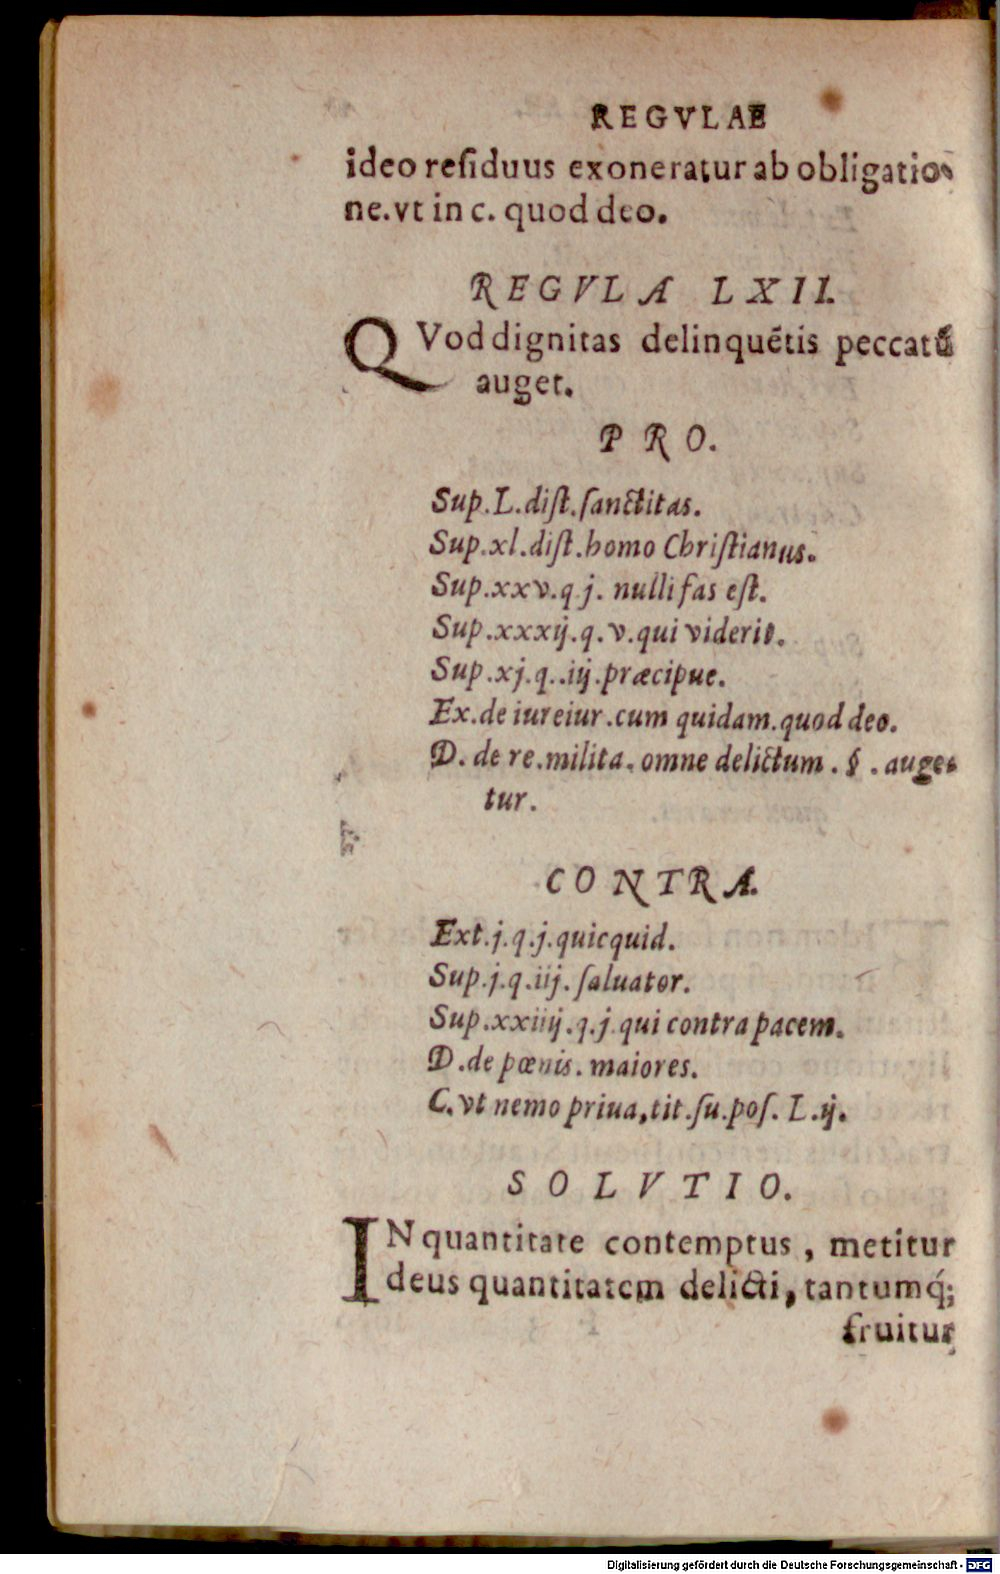 REGVLAE
ideo reſiduus exoneratur ab obligatio-
ne. vt in c. quod deo.
REGVLA LXII.
QVod dignitas delinquẽtis peccatũ
auget.
PRO.
Sup. L. diſt. ſanctitas.
Sup. xl. diſt. homo Chriſtianus.
Sup. xxv. q j. nulli fas eſt.
Sup. xxxij. q. v. qui viderit.
Sup. xj. q. .iij. præcipue.
Ex. de iureiur. cum quidam. quod deo.
D. de re. milita. omne delictum. §. auge-
tur.
CONTRA.
Ext. j. q. j. quicquid.
Sup. j. q. iij. ſaluator.
Sup. xxiiij. q. j. qui contra pacem.
D. de pœnis. maiores.
C. vt nemo priua, tit. ſu. poſ. L. ij.
SOLVTIO.
IN quantitate contemptus, metitur
deus quantitatem delicti, tantumq́;
fruitur
Digitalisierung gefördert durch die Deutsche Forschungsgemeinschaft - DFG